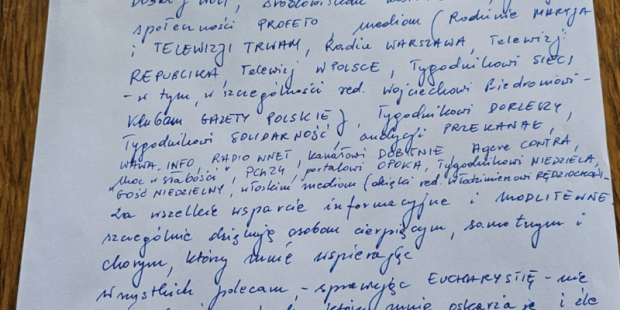 społeczności PROFETO, mediom (Rodzinie MARYJA
i TELEWIZJI TRWAM, Radiu WARSZAWA, Telewizji
REPUBLIKA, Telewizji WPOLSCE, Tygodnikowi SIECI
- w tym, w szczególności red. Wojciechowi Biedroniowi -
Klubom GAZETY POLSKIEJ, Tygodnikowi DORZECZY,
Tygodnikowi SOLIDARNOŚĆ, audycji PRZEKANAŁ,
WAWA.INFO, RADIO WNET, kanałowi DOBITNIE, Agere CONTRA,
"Moc w słabości", PCh24, portalowi OPOKA, Tygodnikowi NIEDZIELA,
GOŚĆ NIEDZIELNY, włoskim mediom (dzięki red. Włodzimierzowi RĘDZIOCHOWI)-
za wszelkie wsparcie informacyjne i MODLITEWNE
szczególnie dziękuję osobom cierpiącym, samotnym i
chorym, którzy mnie wspierają
Wszystkich polecam, - sprawując EUCHARYSTIĘ - nie
którzy mnie oskarżają i źle